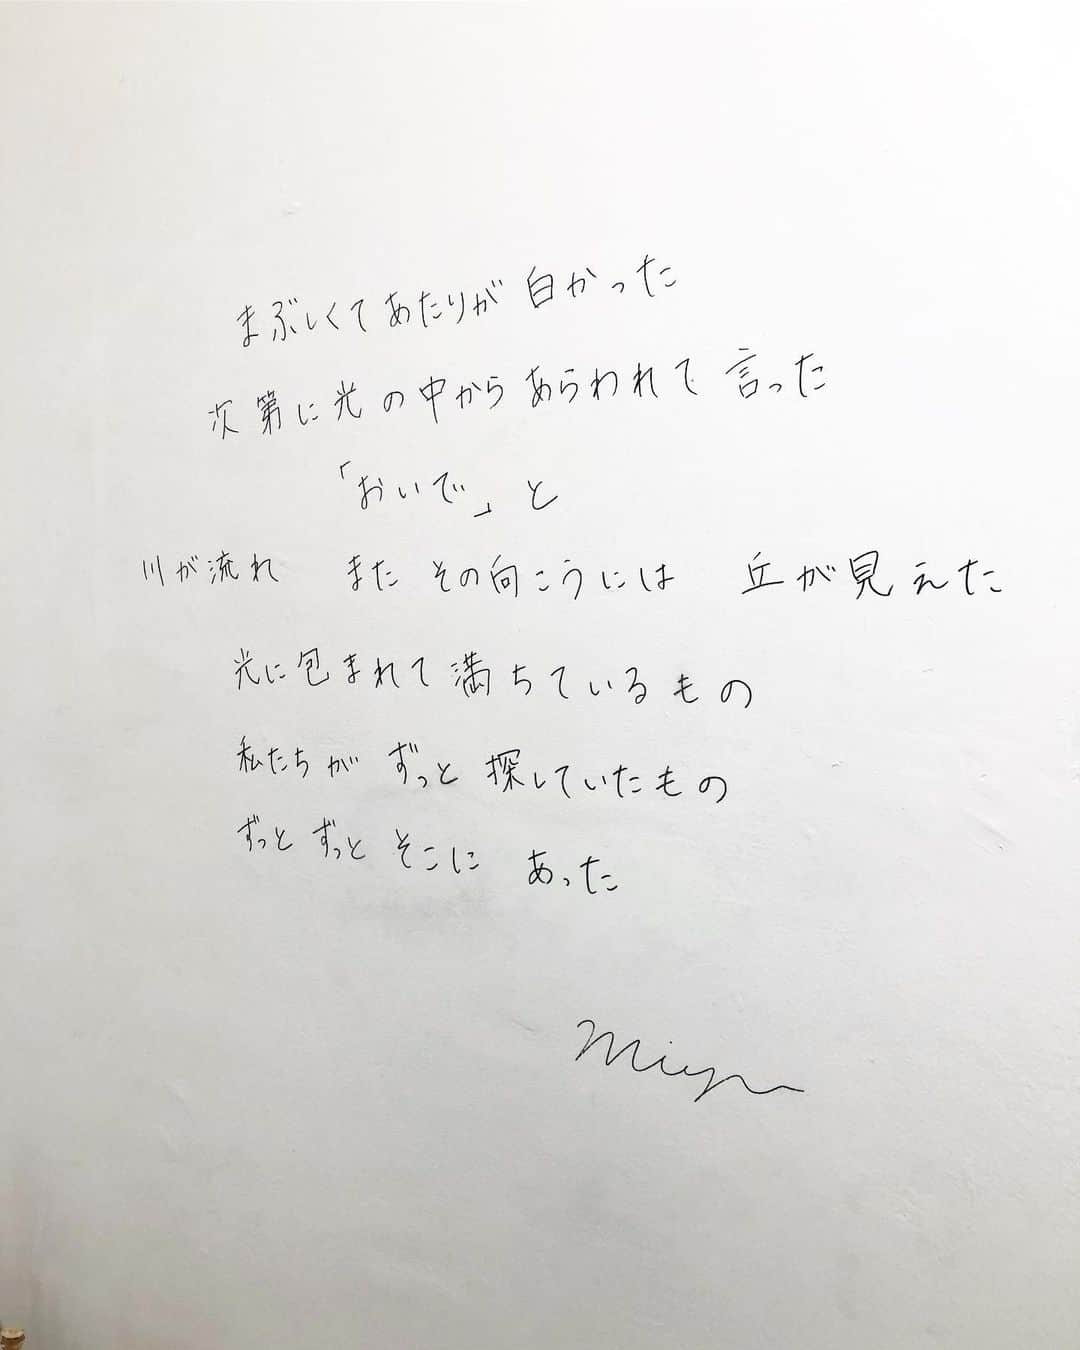 まぶしくてあたりが白かった
次第に光の中からあらわれて言った
「おいで」と
川が流れ　また その向こうには　丘が見えた
光に包まれて満ちているもの
私たちが ずっと 探していたもの
ずっと ずっと そこに あった
Miyu